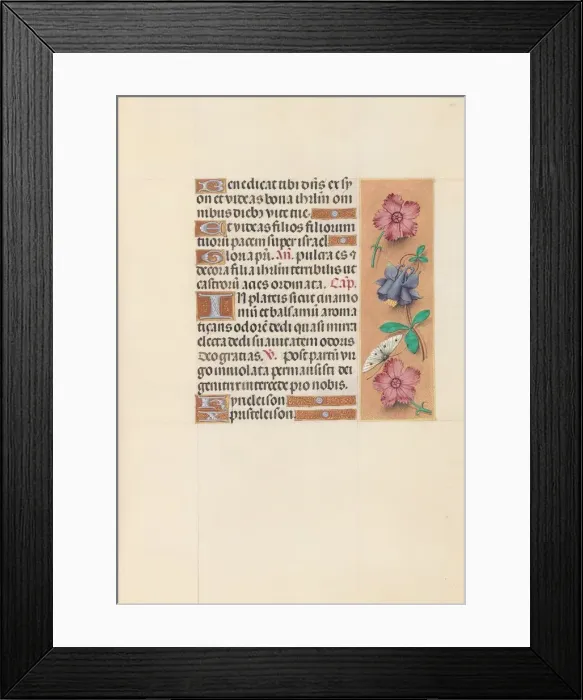 Benedicat tibi dns ex sy
on et videas bona ihrlm om
nibus dieb3 vite tue.
Et videas filios filiorum
tuorū pacem super israel
Gloria pri. An. pulcra es ⁊
decora filia ihrlm terribilis ut
castrorū acies ordinata. Cap.
IN plateis sicut cinamo
mū et balsamū aroma
tizans odorē dedi quasi mirra
electa dedi suavitatem odoris
Deo gratias. V. Post partū vir
go inviolata permansisti dei
genitrix intercede pro nobis.
Kyrieleison
Xpristeleison.